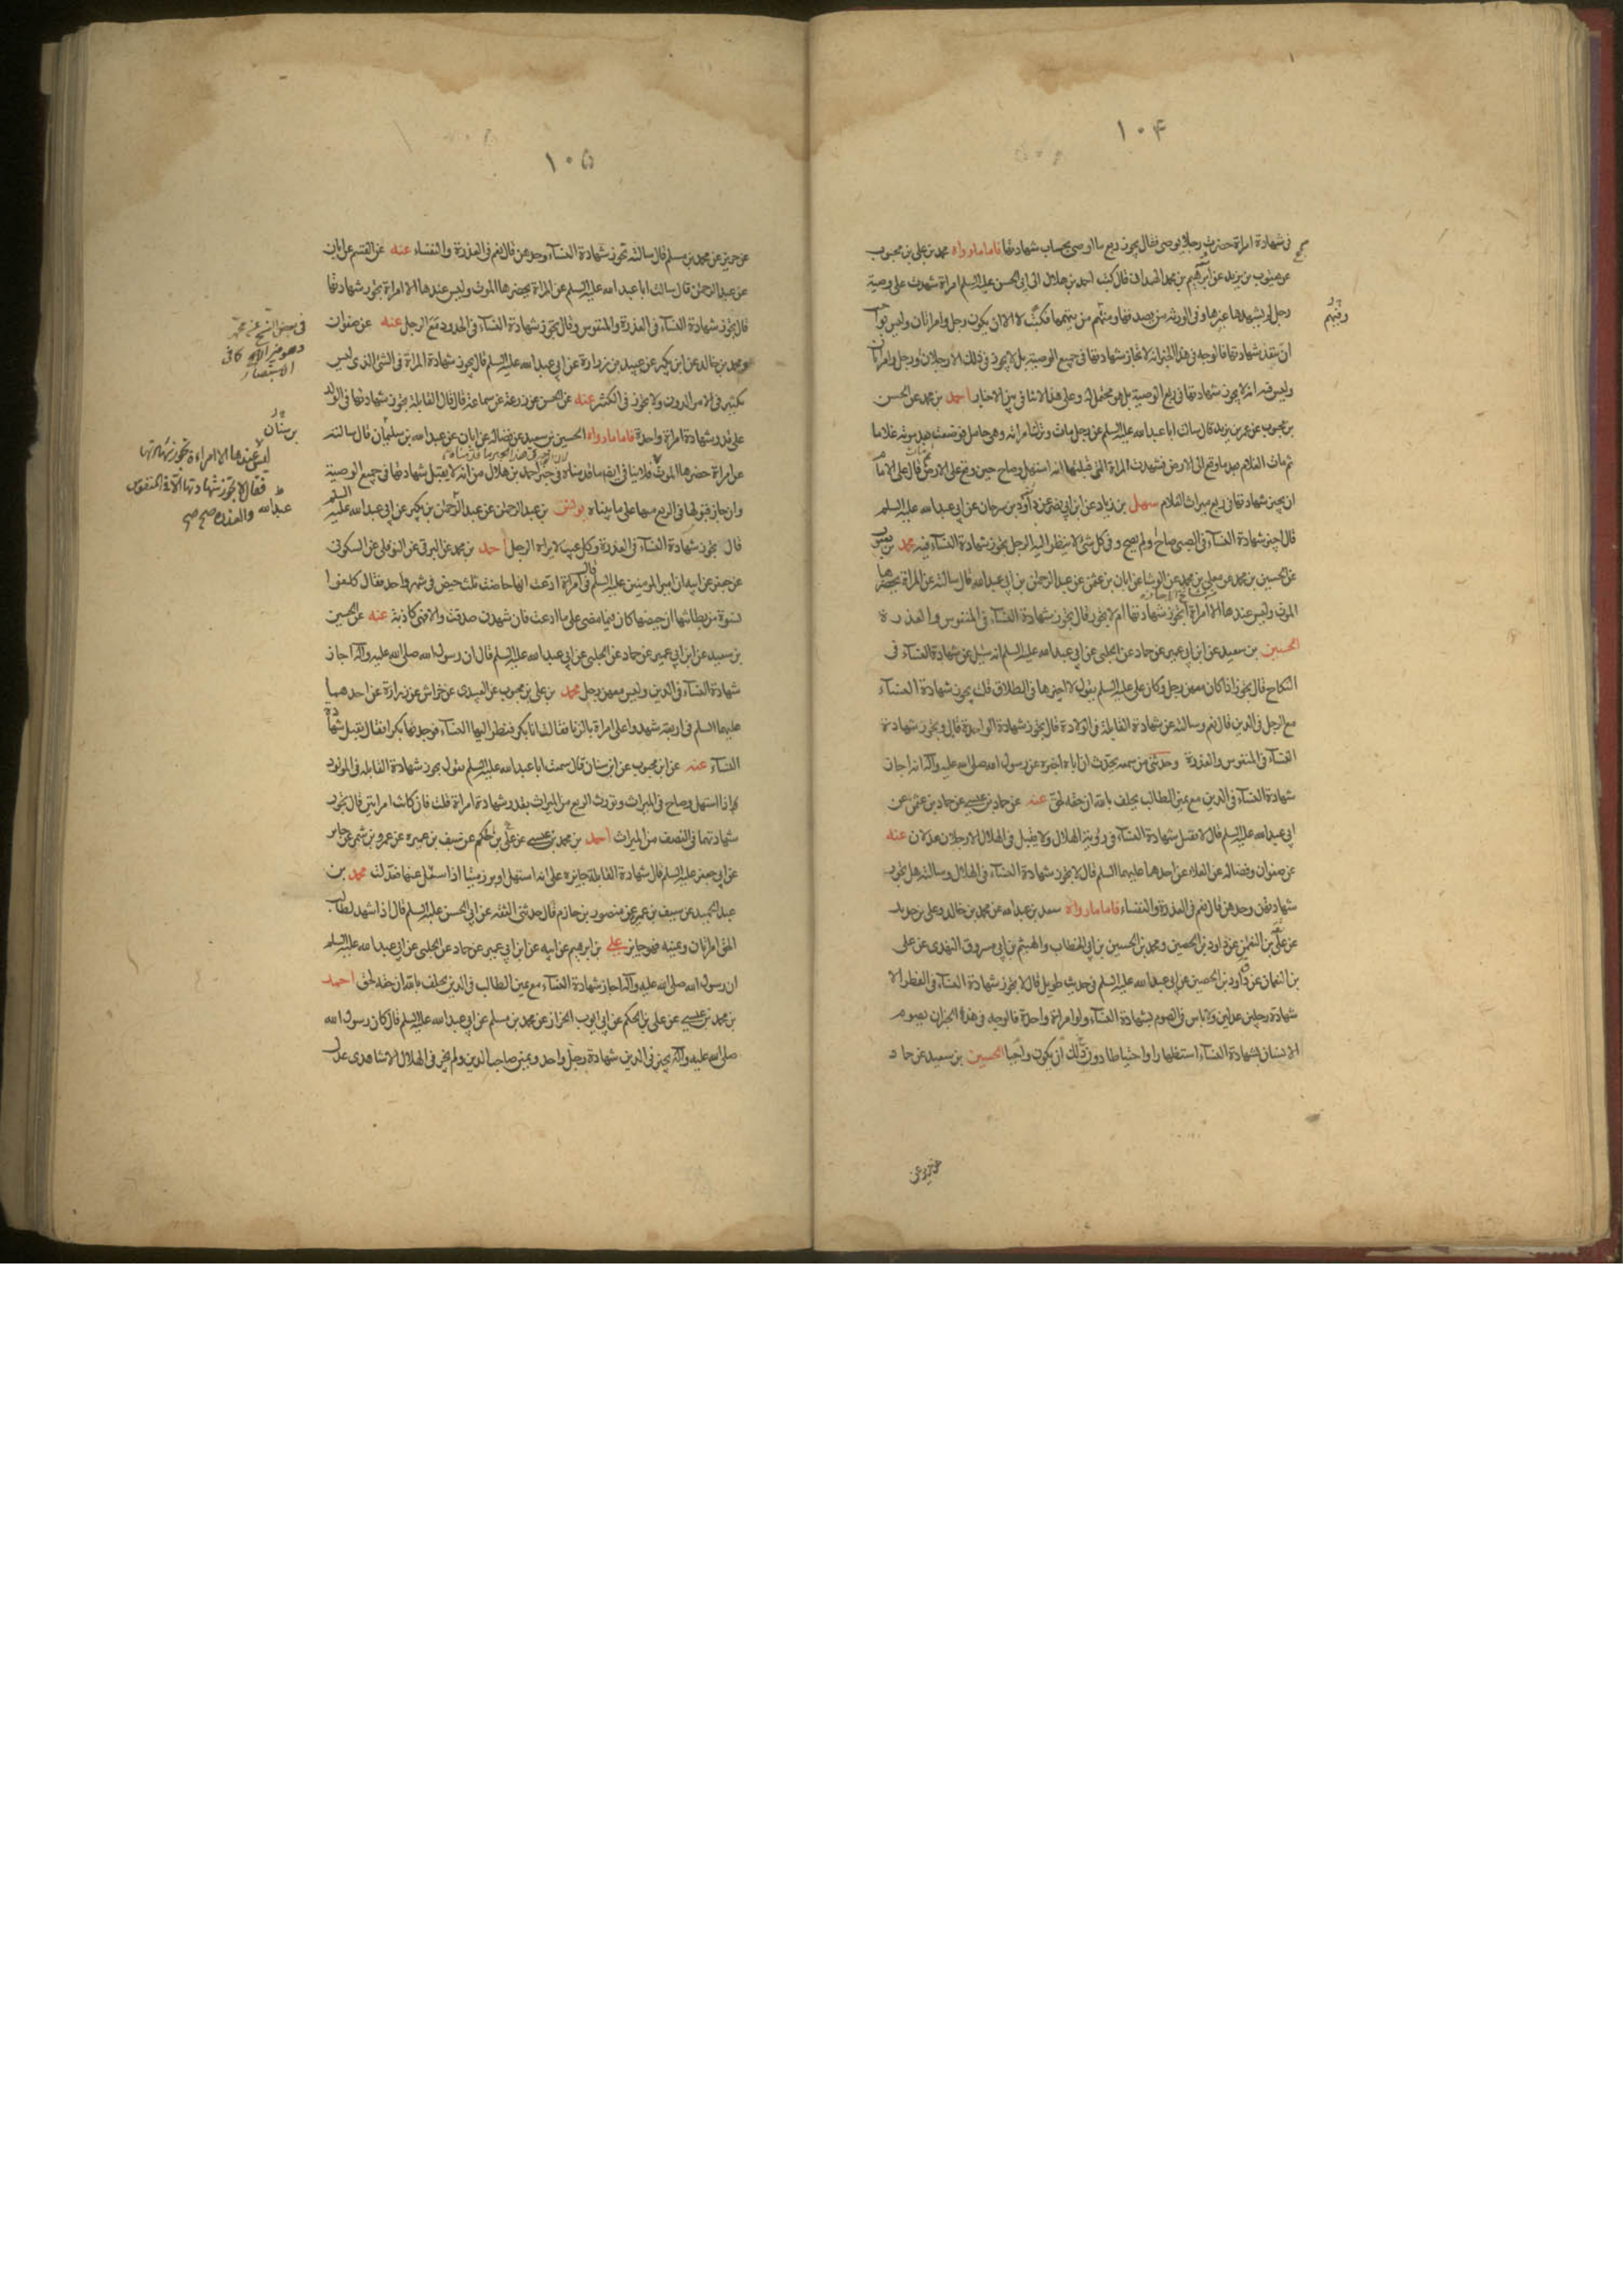 ١٠۴
فى شهادة امراة حضرت رجلا يوصى فقال يجوز ربع ما اوصى بحساب شهادتها فاما ما رواه محمد بن على بن محبوب
عن يعقوب بن يزيد عن ابرهيم بن محمد الهمدانى قال كتب احمد بن هلال الى ابى الحسن عليه السلم امراة شهدت على وصية
رجل لم يشهدها غيرها وفى الورثة من يصدقها ومنهم من يتهمها فكتب لا الا ان يكون رجل وامراتان وليس بواجب
وفيهم
ان تنفذ شهادتها فالوجه فى هذا الخبر انه لا تجاز شهادتها فى جميع الوصية بل لا يجوز فى ذلك الا رجلان او رجل وامراتان
وليس فيه انه لا يجوز شهادتها فى ربع الوصية بل هو محتمل له وعلى هذا لا تنافى بين الاخبار احمد بن محمد عن الحسن
بن محبوب عن عمر بن يزيد قال سالت ابا عبد الله عليه السلم عن رجل مات وترك امراته وهى حامل فوضعت بعد موته غلاما
ثم مات الغلام بعد ما وقع الى الارض فشهدت المراة التى قبلتها انه استهل وصاح حين وقع على الارض ثم مات قال على الامام
ان يجيز شهادتها فى ربع ميراث الغلام سهل بن زياد عن ابن ابى نصر عن داود بن سرحان عن ابى عبد الله عليه السلم
قال اجيز شهادة النساء فى الصبى صاح او لم يصح و فى كل شئ لا ينظر اليه الرجل يجوز شهادة النساء فيه محمد بن يعقوب
عن الحسين بن محمد عن معلى بن محمد عن الوشا عن ابان بن عثمن عن عبد الرحمن بن ابى عبد الله قال سالته عن المراة يحضرها
الموت وليس عندها الا امراة ايجوز شهادتها ام لا يجوز قال يجوز شهادة النساء فى المنفوس والعذرة
الحسين بن سعيد عن ابن ابى عمير عن حماد عن الحلبى عن ابى عبد الله عليه السلم انه سئل عن شهادة النساء فى
النكاح قال يجوز اذا كان معهن رجل وكان على عليه السلم يقول لا اجيزها فى الطلاق قلت يجوز شهادة النساء
مع الرجل فى الدين قال نعم وسالته عن شهادة القابلة فى الولادة قال يجوز شهادة الواحدة قال و يجوز شهادة
النساء فى المنفوس والعذرة وحدثنى من سمعه يحدث ان اباه اخبره عن رسول الله صلى الله عليه وآله انه اجاز
شهادة النساء فى الدين مع يمين الطالب يحلف بالله ان حقه لحق عنه عن حماد بن عيسى عن حماد بن عثمن عن
ابى عبد الله عليه السلم قال لا تقبل شهادة النساء فى رؤية الهلال ولا يقبل فى الهلال الا رجلان عدلان عنه
عن صفوان وفضاله عن العلاء عن احدهما عليهما السلم قال لا يجوز شهادة النساء فى الهلال وسالته هل يجوز
شهادتهن وحدهن قال نعم فى العذرة والنفساء فاما ما رواه سعد بن عبد الله عن محمد بن خالد وعلى بن حديد
عن على بن النعمن عن داود بن الحصين ومحمد بن الحسين بن ابى الخطاب والهيثم بن ابى مسروق النهدى عن على
بن النعمان عن داود بن الحصين عن ابى عبد الله عليه السلم فى حديث طويل قال لا يجوز شهادة النساء فى الفطر الا
شهادة رجلين عدلين ولا باس فى الصوم بشهادة النساء ولو امراة واحدة فالوجه فى هذا الخبر ان يصوم
الانسان بشهادة النساء استظهارا واحتياطا دون ذلك ان يكون واجبا الحسين بن سعيد عن حماد
عن حريز عن
١٠۵
عن حريز عن محمد بن مسلم قال سالته تجوز شهادة النساء وحدهن قال نعم فى العذرة والنفساء عنه عن القسم عن ابان
عن عبد الرحمن قال سالت ابا عبد الله عليه السلم عن المراة يحضرها الموت وليس عندها الا امراة يجوز شهادتها
قال يجوز شهادة النساء فى العذرة والمنفوس وقال تجوز شهادة النساء فى الحدود مع الرجل عنه عن صفوان
ومحمد بن خالد عن ابن بكير عن عبيد بن زرارة عن ابى عبد الله عليه السلم قال يجوز شهادة المراة فى الشئ الذى ليس
بكثير فى الامر الدون ولا يجوز فى الكثير عنه عن الحسن عن زرعة عن سماعة قال قال القابلة يجوز شهادتها فى الولد
على قدر شهادة امراة واحدة فاما ما رواه الحسين بن سعيد عن فضالة عن ابان عن عبد الله بن سليمان قال سالته
بن سنان
عن امراة حضرها الموت فلا ينافى ايضا ما قدمناه فى خبر احمد بن هلال من انه لا يقبل شهادتها فى جميع الوصية
ليس عندها الا امراءة تجوز شهادتها
فقال لا تجوز شهادتها الا فى المنفوس
والعذره صح صح
وان جاز قبولها فى الربع منها على ما بيناه يونس بن عبد الرحمن عن عبد الرحمن بن بكير عن ابى عبد الله عليه السلم
عبد الله
قال يجوز شهادة النساء فى العذرة وكل عيب لا يراه الرجل احمد بن محمد عن البرقى عن النوفلى عن السكونى
عن جعفر عن ابيه ان امير المومنين عليه السلم قال فى امراة ادعت انها حاضت ثلث حيض فى شهر واحد فقال كلفوا
نسوة من بطانتها ان حيضها كان فيما مضى على ما ادعت فان شهدن صدقت والا فهى كاذبة عنه عن الحسين
بن سعيد عن ابن ابى عمير عن حماد عن الحلبى عن ابى عبد الله عليه السلم قال ان رسول الله صلى الله عليه وآله اجاز
شهادة النساء فى الدين وليس معهن رجل محمد بن على بن محبوب عن العبيدى عن خراش عن زرارة عن احدهما
عليهما السلم فى اربعة شهدوا على امراة بالزنا فقالت انا بكر فنظر اليها النساء فوجدنها بكرا فقال يقبل شهادة
النساء عنه عن ابن محبوب عن ابن سنان قال سمعت ابا عبد الله عليه السلم يقول يجوز شهادة القابله فى المولود
اذا استهل وصاح فى الميراث ويورث الربع من الميراث بقدر شهادة امراة قلت فان كانتا امراتين قال يجوز
شهادتهما فى النصف من الميراث احمد بن محمد بن عيسى عن على بن الحكم عن سيف بن عميره عن عمرو بن شمر عن جابر
عن ابى جعفر عليه السلم قال شهادة القابلة جايزه على انه استهل او برز ميتا اذا سئل عنها فعدلت محمد بن
عبد الحميد عن سيف بن عميرة عن منصور بن حازم قال حدثنى الثقة عن ابى الحسن عليه السلم قال اذا شهد لطالب
الحق امراتان ويمينه فهو جايز على بن ابرهيم عن ابيه عن ابن ابى عمير عن حماد عن الحلبى عن ابى عبد الله عليه السلم
ان رسول الله صلى الله عليه وآله اجاز شهادة النساء مع يمين الطالب فى الدين يحلف بالله ان حقه لحق احمد
بن محمد بن عيسى عن على بن الحكم عن ابى ايوب الخزاز عن محمد بن مسلم عن ابى عبد الله عليه السلم قال كان رسول الله
صلى الله عليه وآله يجيز فى الدين شهادة رجل واحد ويمين صاحب الدين ولم يجز فى الهلال الا شاهدى عدل
فى بعض النسخ عن محمد
وهو
الاستبصار